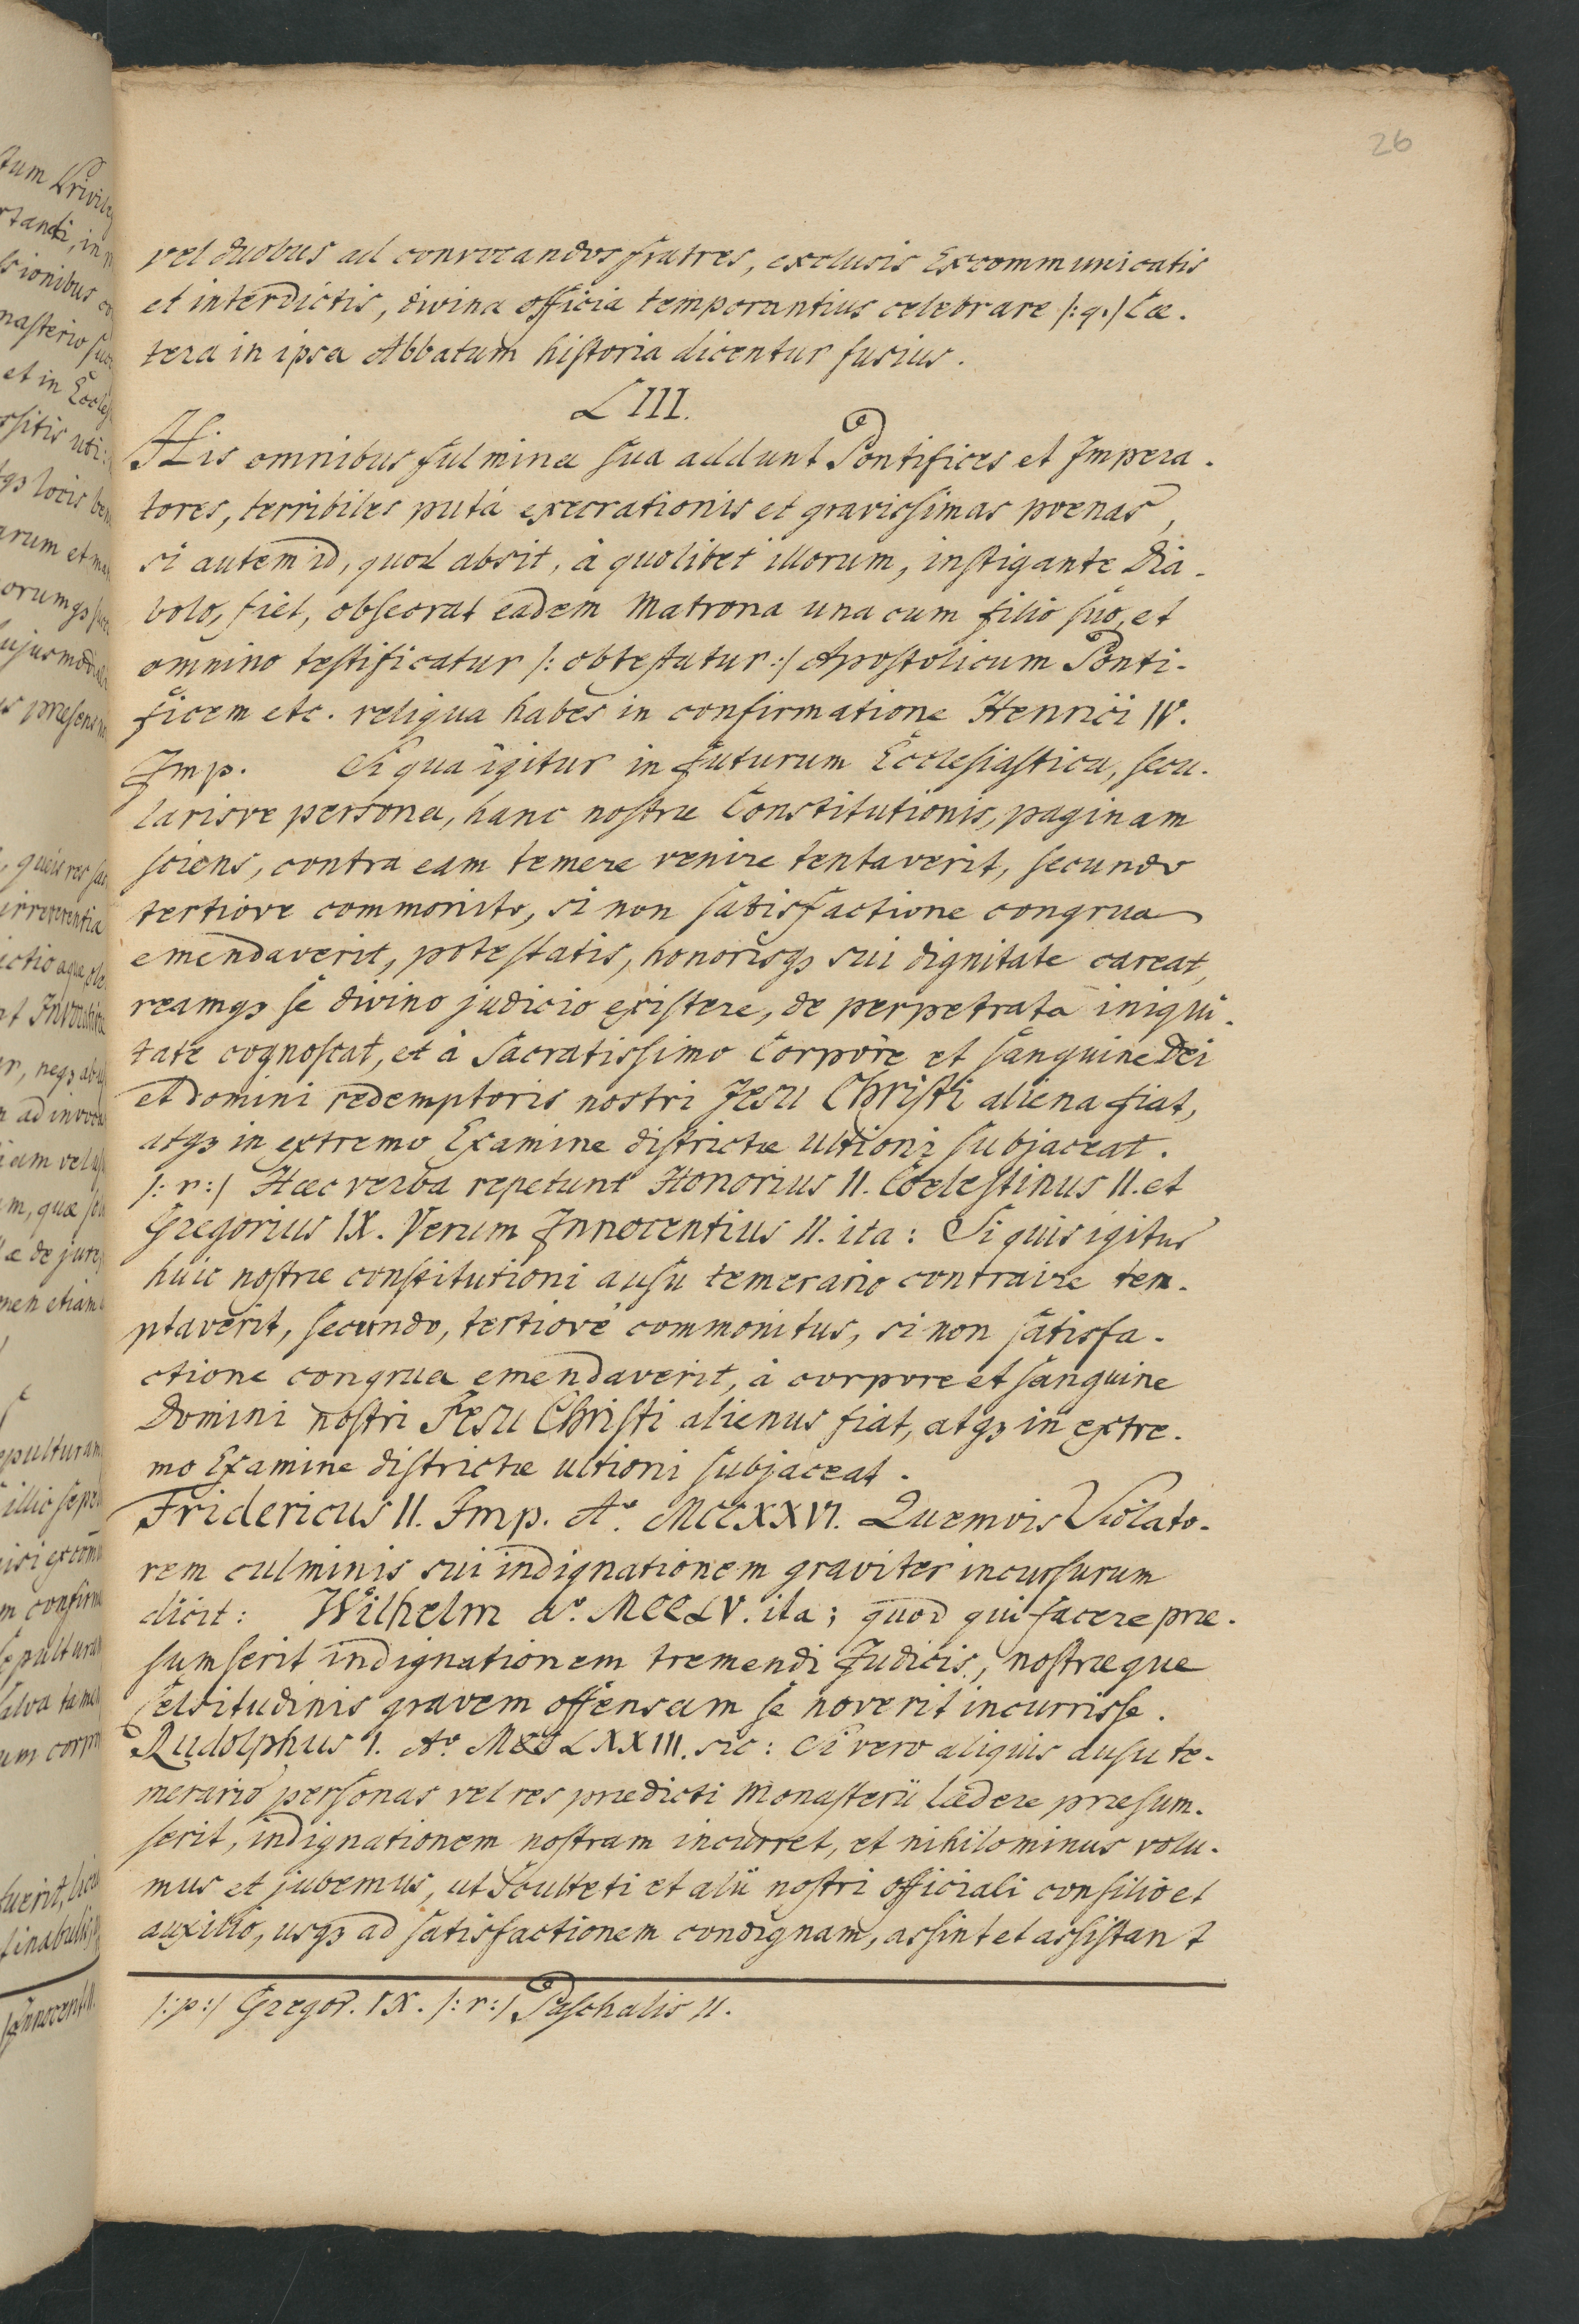 26
vel duobus ad convocandos fratres, exclusis Excommunicatis
et interdictis, divina officia temporantius celebrare /:q./ Cæ-
tera in ipsa Abbatum historia dicentur fusius.
LIII.
His omnibus fulmina sua addunt Pontifices et Impera-
tores, terribiles putá execrationis et gravissimas poenas,
si autem id, quod absit, à quolibet illorum, instigante Dia-
bolo, fiet, obsecrat eadem Matrona una cum filio suo, et
omnino testificatur /: obtestatur:/ Apostolicum Ponti-
ficem etc. reliqua habes in confirmatione Henrici IV.
Imp. Si qua igitur in futurum Ecclesiastica, secu-
larisve persona, hanc nostræ Constitutionis, paginam
sciens, contra eam temere venire tentaverit, secundo
tertiove commonito, si non satisfactione congrua
emendaverit, potestatis, honorisqȝ sui dignitate careat,
reamqȝ se divino judicio existere, de perpetrata iniqui-
tate cognoscat, et à Sacratissimo Corpore et sanguine Dei
et Domini redemptoris nostri Jesu Christi aliena fiat,
atqȝ in extremo Examine districtæ ultioni subjaceat.
/: r:/ Hæc verba repetunt Honorius II. Coelestinus II. et
Gregorius IX. Verum Innocentius II. ita: Si quis igitur
huic nostræ constitutioni ausu temerario contraire tem-
ptaverit, secundo, tertiove commonitus, si non satisfa-
ctione congrua emendaverit, à corpore et sanguine
Domini nostri Jesu Christi alienus fiat, atqȝ in extre-
mo Examine districtæ ultioni subjaceat.
Fridericus II. Imp. Aº. MCCXXVI. Quemvis Violato-
rem culminis sui indignationem graviter incursurum
dicit: Wilhelm Aº. MCCLV. ita; quod qui facere præ-
sumserit indignationem tremendi Judicis, nostræque
Celsitudinis gravem offensam se noverit incurrisse.
Rudolphus I. Aº MCCLXXIII. sic: Si vero aliquis ausu te-
merario personas vel res prædicti Monasterii lædere præsum-
serit, indignationem nostram incurret, et nihilominus volu-
mus et jubemus, ut Sculteti et alii nostri officiali consilio et
auxilio, usqȝ ad satisfactionem condignam, assint et assistant
/:p:/ Gregor. IX. /: r:/ Paschalis II.